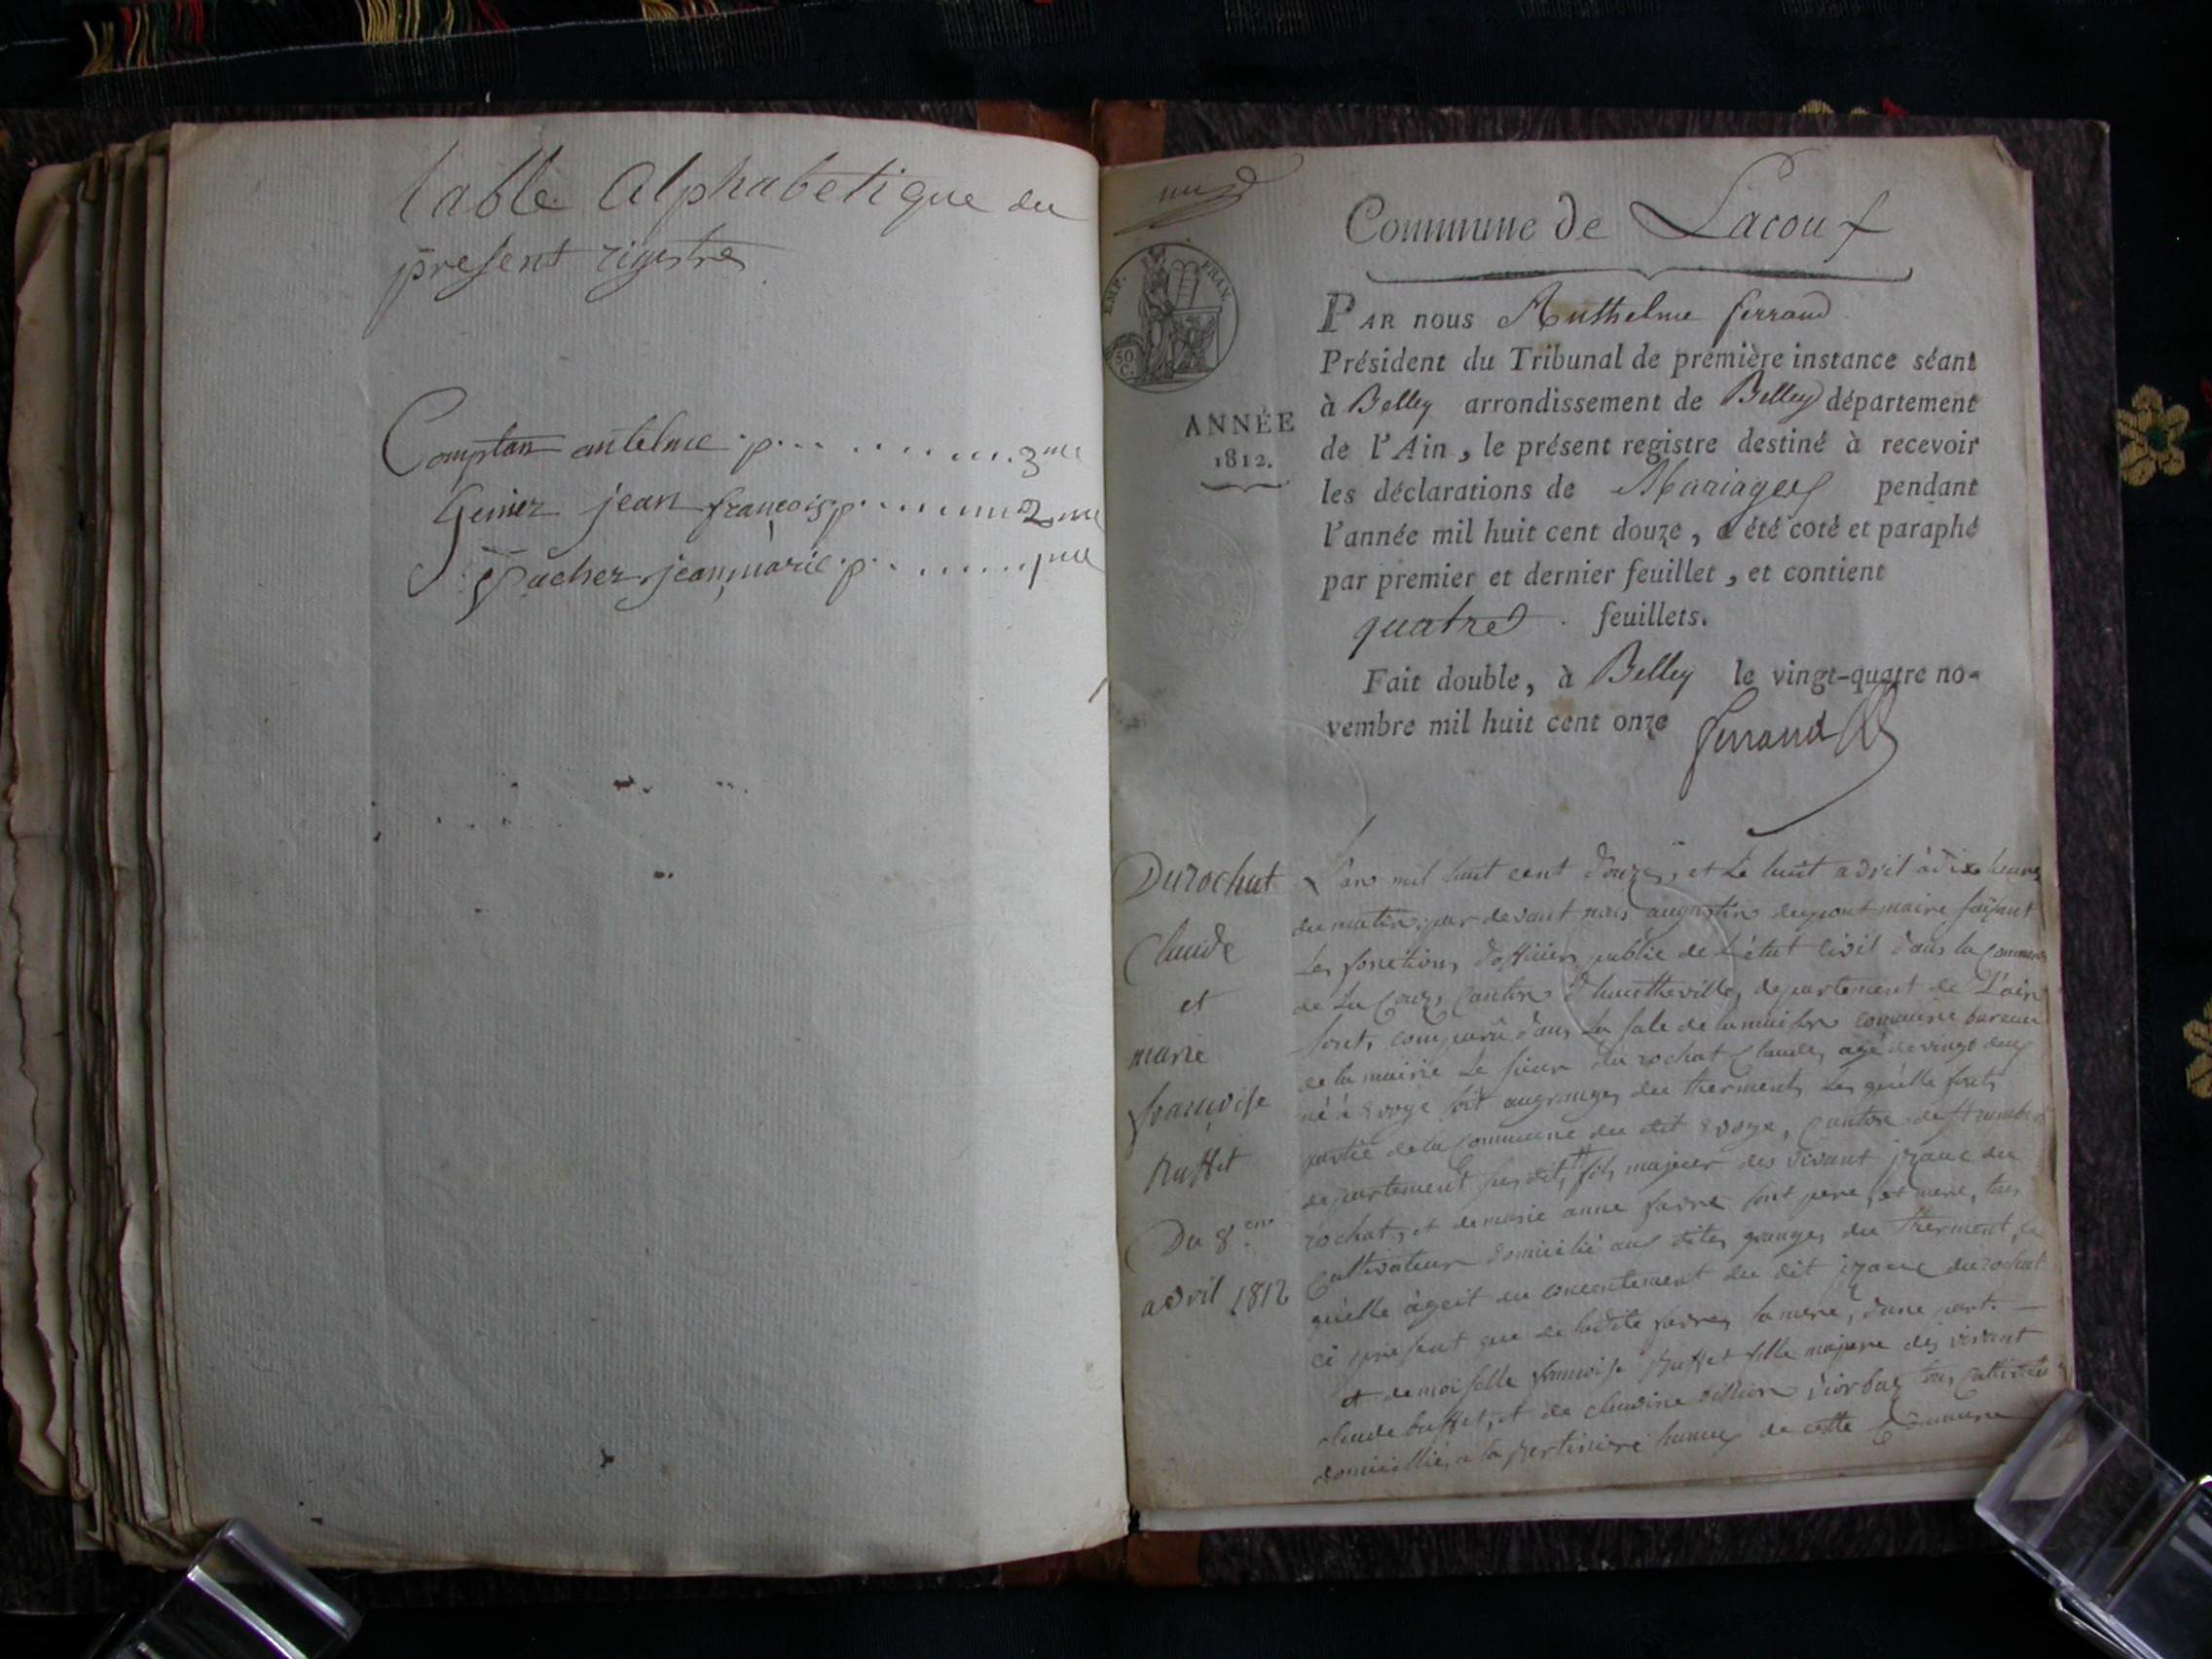 table Alphabetique du
present rigistre
Comptan antelme p... ........3me
Genier jean françois p........2me
Pacher jean marie p.........1re
EMP. FRAN.
50
C.
Commune de Lacoux
PAR nous Anthelme ferrand
Président du Tribunal de première instance séant
à Belley arrondissement de Belley département
ANNÉE
1812.
de l'Ain, le présent registre destiné à recevoir
les déclarations de Mariages pendant
l'année mil huit cent douze, a été coté et paraphé
par premier et dernier feuillet, et contient
quatre feuillets.
Fait double, à Belley le vingt-quatre no-
vembre mil huit cent onze ferrand
Durochat
Claude
et
marie
françoise
Buffet
Du 8
avril 1812
L'an mil huit cent douze, et le huit avril à dix heures
du matin, par devant nous augustin dupont maire faisant
les fonctions d'officier public de L'état Civil dans la Commune
de La Coux, Canton d'hautheville, departement de L'ain
sont comparu dans la sale de la maison commune bureau
de la mairie Le sieur du rochat Claude, agé de vingt deux
né à Evoge soit au granges du therment, les quelle sont
partie de la Commune du dit Evoge, Canton de St rambert
departement susdit, fils majeur des vivant du
rochat, et de marie anne favre sont pere, et mere, tous
Cultivateur domicilié aux dites granges du therment, le
quelle âgeit du concentement du dit durochat
ci present que de ladite favre, la mere, d'une part. —
et demoiselle françoise Buffet fille majeure des vivant
claude buffet, et de claudine tous Cultivateur
domicillié a la hameux de cette Commune